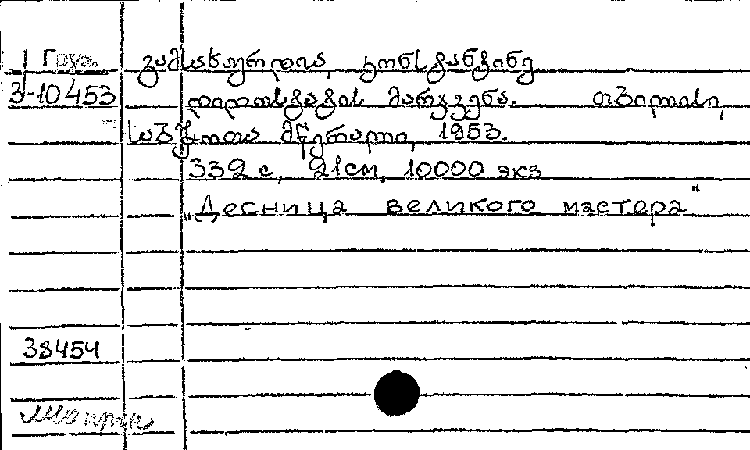 Груз. გამსახურდია, კონსტანტინე
3-10453 დიდოსტატის მარჯვენა. თბილისი,
საბჭოთა მწერალი, 1953.
332 с, 21см, 10000 экз
„Десница великого мастера"
38454